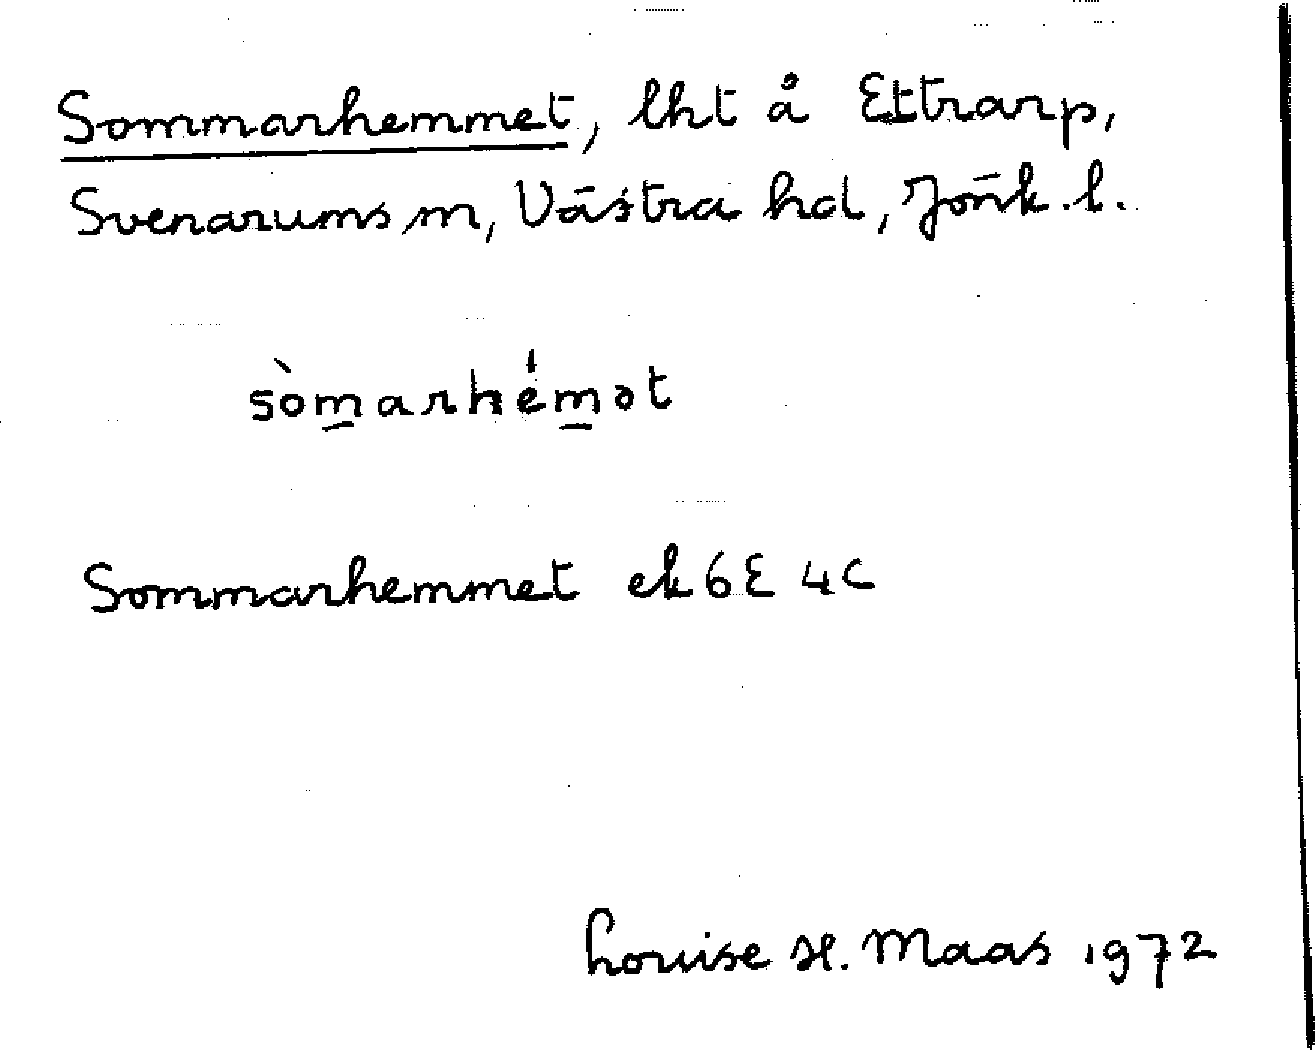 Sommarhemmet, lht å Ettrarp,
Svenarums sn, Västra hd, Jönk. l.
sòm̲arhém̲ət
Sommarhemmet ek 6E 4c
Louise H. Maas 1972